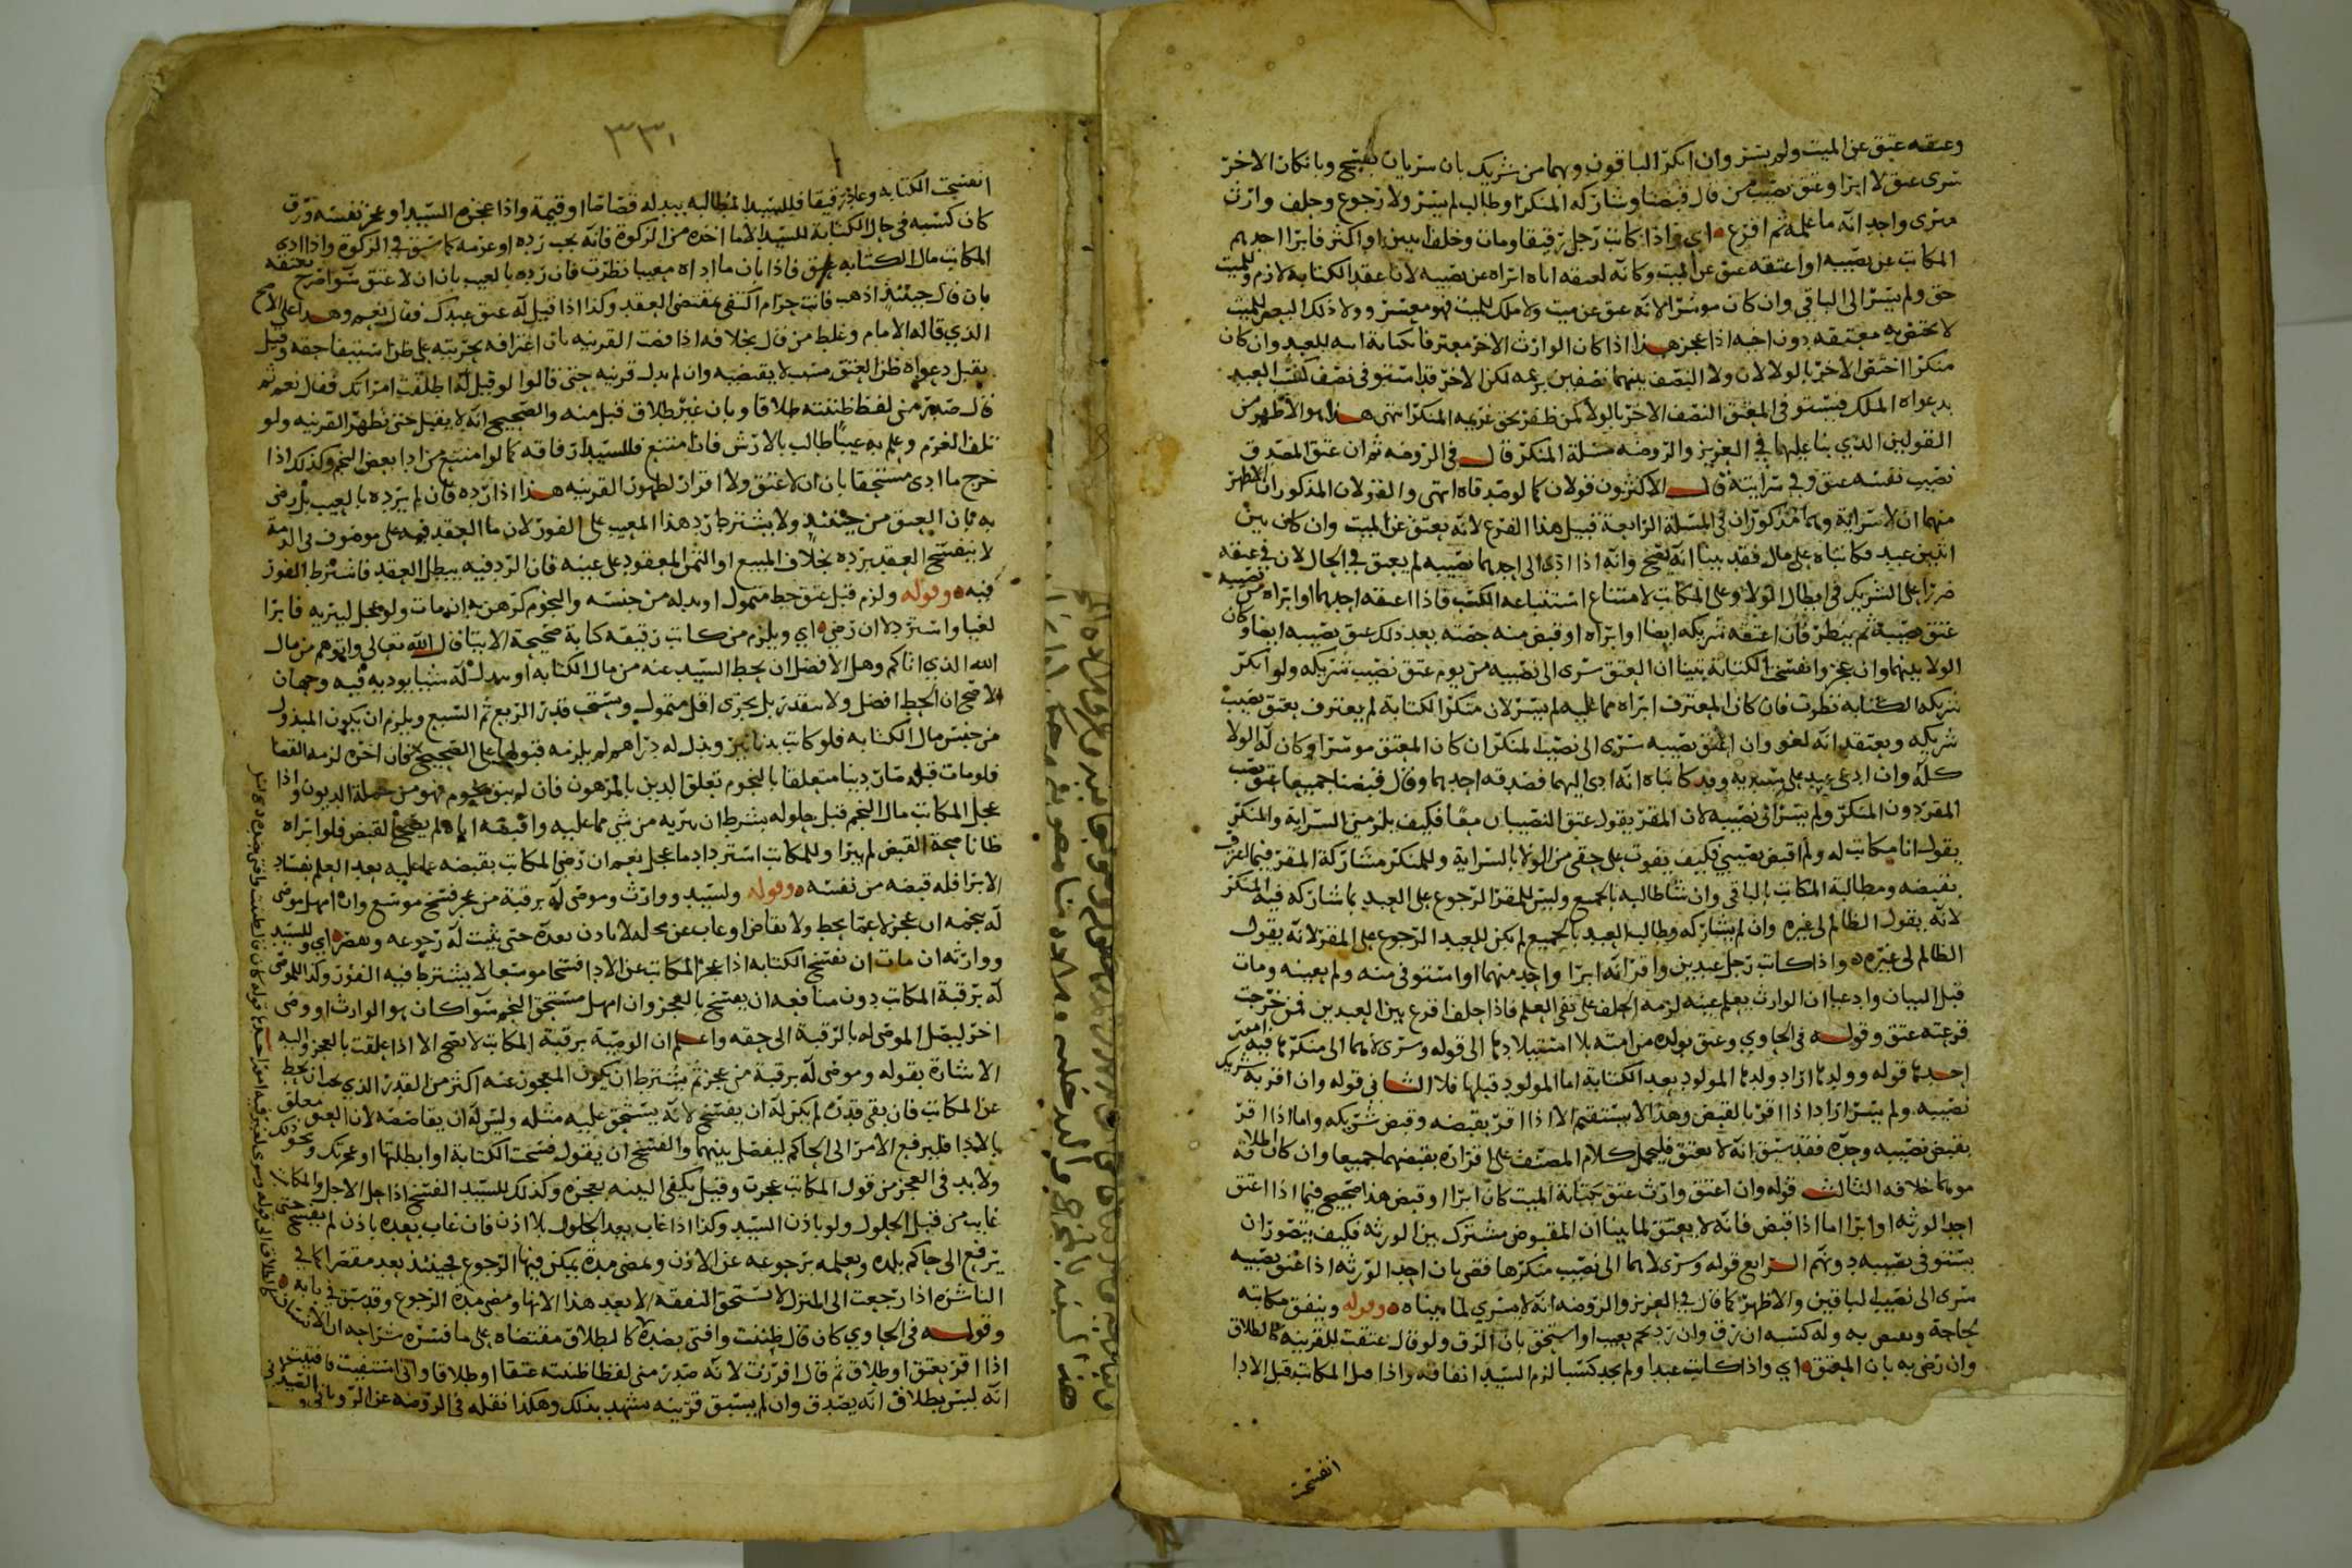 وعتقه عتق عن الميت ولم يسر وان انكر الباقون وهما من شريك بان سريان يفسخ وبانكان الاخر
سرى عتق لا ابرا وعتق نصيب من قال قبضنا وشاركه المنكر او طالب لم يسر ولا رجوع وحلف وارث
موسى واحد انه ما علمه ثم اقرع اي واذا كاتب رجل رقيقا ومات وخلف ابنين او اكثر فابرا احدهم
المكاتب عن نصيبه او اعتقه عتق عن الميت وكانه لعتقه اياه ابراه عن نصيبه لان عقد الكتابة لازم
حق ولم يسر الى الباقي وان كان موسرا لانه عتق عن ميت ولا ملك للميت فهو معسر وولا ذلك البعض للميت
لا يختص به معتقه دون اخيه اذا عجز هذا اذا كان الوارث الاخر معترفا بكتابة ابيه للعبد وان كان
منكرا اختص الاخر بالولا لان ولا النصف بينهما نصفين بزعمه لكن الاخر قد استوفى نصف كسب العبد
بدعواه الملك فيستوفي المعتق النصف الاخر بالولا كمن ظفر بحق غريمه المنكر انتهى هذا هو الاظهر من
القولين الذي بنا عليهما في العزيز والروضه مسلة المنكر قال في الروضه ثم ان عتق المصدق
نصيب نفسه عتق وفي سرايته قال الاكثرون قولان كما لو صدقاه انتهى والقولان المذكوران الاظهر
منهما ان لا سراية وهما مذكوران في المسلة الرابعة قبيل هذا الفرع لانه يعتق عن الميت وان كان بين
اثنين عبد فكاتباه على مال فقد بينا انه يصح وانه اذا ادى الى احدهما نصيبه لم يعتق في الحال لان في عتقه
ضررا على الشريك في ابطال الولا وعلى المكاتب لامتناع استتباعه الكسب فاذا اعتقه احدهما او ابراه من نصيبه
عتق نصيبه ثم ينظر فان اعتقه شريكه ايضا او ابراه او قبض منه حصته بعد ذلك عتق نصيبه ايضا وكان
الولا بينهما وان عجز وانفسخ الكتابة تبينا ان العتق سرى الى نصيبه من يوم عتق نصيب شريكه ولو انكر
شريكه الكتابه نظرت فان كان المعترف ابراه مما عليه لم يسر لان منكر الكتابة لم يعترف بعتق نصيب
شريكه ويعتقد انه لغو وان اعتق نصيبه سرى الى نصيب المنكر ان كان المعتق موسرا وكان له الولا
كله وان ادعى عبد على سيديه وقد كاتباه انه ادى اليهما فصدقه احدهما وقال قبضنا جميعا عتق نصيب
المقر دون المنكر ولم يسر الى نصيبه لان المقر يقول عتق النصيبان معا فكيف يلزمني السراية والمنكر
يقول انا مكاتب له ولم اقبض نصيبي فكيف يفوت على حقي من الولا بالسراية وللمنكر مشاركة المقر فيما اعترف
بقبضه ومطالبة المكاتب بالباقي وان شا طالبه بالجميع وليس للمقر الرجوع على العبد بما شاركه فيه المنكر
لانه يقول الظالم لي غيره وان لم يشاركه وطالب العبد بالجميع لم يكن للعبد الرجوع على المقر لانه يقول
الظالم لي غيره واذا كاتب رجل عبدين واقر انه ابرا واحد منهما او استوفى منه ولم يعينه ومات
قبل البيان وادعيا ان الوارث يعلم عينه لزمه الحلف على نفي العلم فاذا حلف اقرع بين العبدين فمن خرجت
قرعته عتق وقوله في الحاوي وعتق بولده من امته بلا استيلادها الى قوله وسرى لا مما الى منكرها فيه امور
احدها قوله وولدها اراد ولدها المولود بعد الكتابة اما المولود قبلها فلا الثاني قوله وان اقر به
نصيبه ولم يسر اراد اذا اقر بالقبض وهذا لا يستقيم الا اذا اقر بقبضه وقبض شريكه واما اذا اقر
بقبض نصيبه وحده فقد سبق انه لا يعتق فليحمل كلام المصنف على اقراره بقبضهما جميعا وان كان اطلاقه
موهما خلافه الثالث قوله وان اعتق وارث عتق بكتابة الميت كان ابرا او قبض هذا صحيح فيما اذا اعتق
احد الورثه او ابرا اما اذا قبض فانه لا يعتق لما بينا ان المقبوض مشترك بين الورثه فكيف يتصور ان
يستوفي نصيبه دونهم الرابع قوله وسرى لا مما الى نصيب منكرها فقضى بان احد الورثه اذا عتق نصيبه
سرى الى نصيب الباقين والاظهر كما قال في العزيز والروضه انه لا يسري لما بيناه وقوله وينفق مكاتبه
لحاجة وبعض به وله كسبه ان رق وان رد نجم بعيب او استحق بان الرق ولو قال عتقت للقرينه كالطلاق
وان رضي به بان العتق اي واذا كاتب عبدا ولم يجد كسبا لزم السيد انفاقه واذا قتل المكاتب قبل الادا
انفسخت
٣٣١
انفسخت الكتابه وعاد رقيقا فللسيد المطالبه ببدله قصاصا او قيمة واذا عجزه السيد او عجز نفسه ورق
كان كسبه في حال الكتابة للسيد الا ما اخذه من الزكوة فانه يجب رده او غرمه كما سبق في الزكوة واذا ادى
المكاتب مال الكتابه عتق فاذا بان ما اداه معيبا نظرت فان رده بالعيب بان ان لا عتق سوا صرح بعتقه
بان قال حينئذ اذهب فانت حر ام اكتفى بمقتضى العقد وكذا اذا قيل له عتق عبدك فقال نعم وهذا على الاصح
الذي قاله الامام وغلط من قال بخلافه اذا قضت القرينه بان اعترافه بحريته على ظن استيفا حقه وقيل
يقبل دعواه ظن العتق بسبب لا يقتضيه وان لم يدل قرينه حتى قالوا لو قيل له اطلقت امراتك فقال نعم ثم
قال صدر مني لفظ ظننته طلاقا وبان غير طلاق قبل منه والصحيح انه لا يقبل حتى تظهر القرينه ولو
تلف النجم وعلم به عيبا طالب بالارش فان امتنع فللسيد ارقاقه كما لو امتنع من ادا بعض النجم وكذلك اذا
خرج ما ادى مستحقا بان ان لا عتق ولا اقرار لظهور القرينه هذا اذا رده فان لم يرده بالعيب بل رضى
به بان العتق من حينئذ ولا يشترط رد هذا المعيب على الفور لان ما العقد فيه على موصوف في الذمة
لا ينفسخ العقد برده بخلاف المبيع او الثمن المعقود على عينه فان الرد فيه يبطل العقد فاشترط الفور
فيه وقوله ولزم قبل عتق حط متمول او بدله من جنسه والنجوم كرهن به ان مات ولو عجل ليبريه فابرا
لغيا واسترد لا ان رضي اي ويلزم من كاتب رقيقه كتابة صحيحة الايتا قال الله تعالى واتوهم من مال
الله الذي اتاكم وهل الافضل ان يحط السيد عنه من مال الكتابه او يبدل له شيا يوديه فيه وجهان
الاصح ان الحط افضل ولا يتقدر بل يجزي اقل متمول ويستحب قدر الربع ثم السبع ويلزم ان يكون المبذول
من جنس مال الكتابه فلو كاتب بدنانير وبذل له دراهم لم يلزمه قبولها على الصحيح فان اخره لزمه القضا
فلو مات قبله صار دينا متعلقا بالنجوم تعلق الدين بالمرهون فان لم يبق نجوم فهو من جملة الديون واذا
عجل المكاتب مال النجم قبل حلوله بشرط ان يبريه من شي مما عليه واقبضه اياه لم يصح القبض فلو ابراه
ظانا صحة القبض لم يبرا وللمكاتب استرداد ما عجل نعم ان رضي المكاتب بقبضه عما عليه بعد العلم بفساد
الابرا فله قبضه من نفسه وقوله ولسيد ووارث وموصى له برقبة من عجز فسخ موسع وان امهل موصى
له بنجمه ان عجز لا عما يحط ولا تقاص او غاب عن محله لا باذن بعده حتى يثبت له رجوعه وبقصر اي وللسيد
ووارثه ان مات ان يفسخ الكتابه اذا عجز المكاتب عن الادا فسخا موسعا لا يشترط فيه الفور وكذا للموصى
له برقبة المكاتب دون منافعه ان يفسخ بالعجز وان امهل مستحق النجم سوا كان هو الوارث او وصى
اخر ليصل الموصى له بالرقبة الى حقه واعلم ان الوصية برقبة المكاتب لا تصح الا اذا علقت بالعجز واليه
الاشارة بقوله وموصى له برقبة من عجز ثم يشترط ان يكون المعجوز عنه اكثر من القدر الذي يجب ان يحط
عن المكاتب فان بقي قدره لم يكن له ان يفسخ لانه يستحق عليه مثله وليس له ان يقاصصه لان العتق معلق
بالادا فليرفع الامر الى الحاكم ليفصل بينهما والفسخ ان يقول فسخت الكتابة او ابطلتها او عجزتك ونحو ذلك
ولا بد في العجز من قول المكاتب عجزت وقيل يكفي البينه بعجزه وكذلك للسيد الفسخ اذا حل الاجل والمكاتب
غايب من قبل الحلول ولو باذن السيد وكذا اذا غاب بعد الحلول بلا اذن فان غاب بعده باذن لم يفسخ حتى
يرفع الى حاكم بلده ويعلمه برجوعه عن الاذن ويمضي مدة يمكن فيها الرجوع فحينئذ يعد مقصرا كما في
الناشزه اذا رجعت الى المنزل لا تستحق النفقه الا بعد هذا الانها ومضي مدة الرجوع وقد سبق في بابه
وقوله في الحاوي كان قال ظننت وافتى بضده كالطلاق مقتضاه على ما فسره شراحه ان الانسان
اذا اقر بعتق او طلاق ثم قال اقررت لانه صدر مني لفظا ظننته عتقا او طلاقا واني استفتيت فافتيت
انه ليس بطلاق انه يصدق وان لم يسبق قرينه يشهد بذلك وهكذا نقله في الروضه عن الروياني